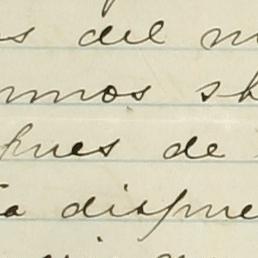 s del m
mmos sh
pues de
a dispue